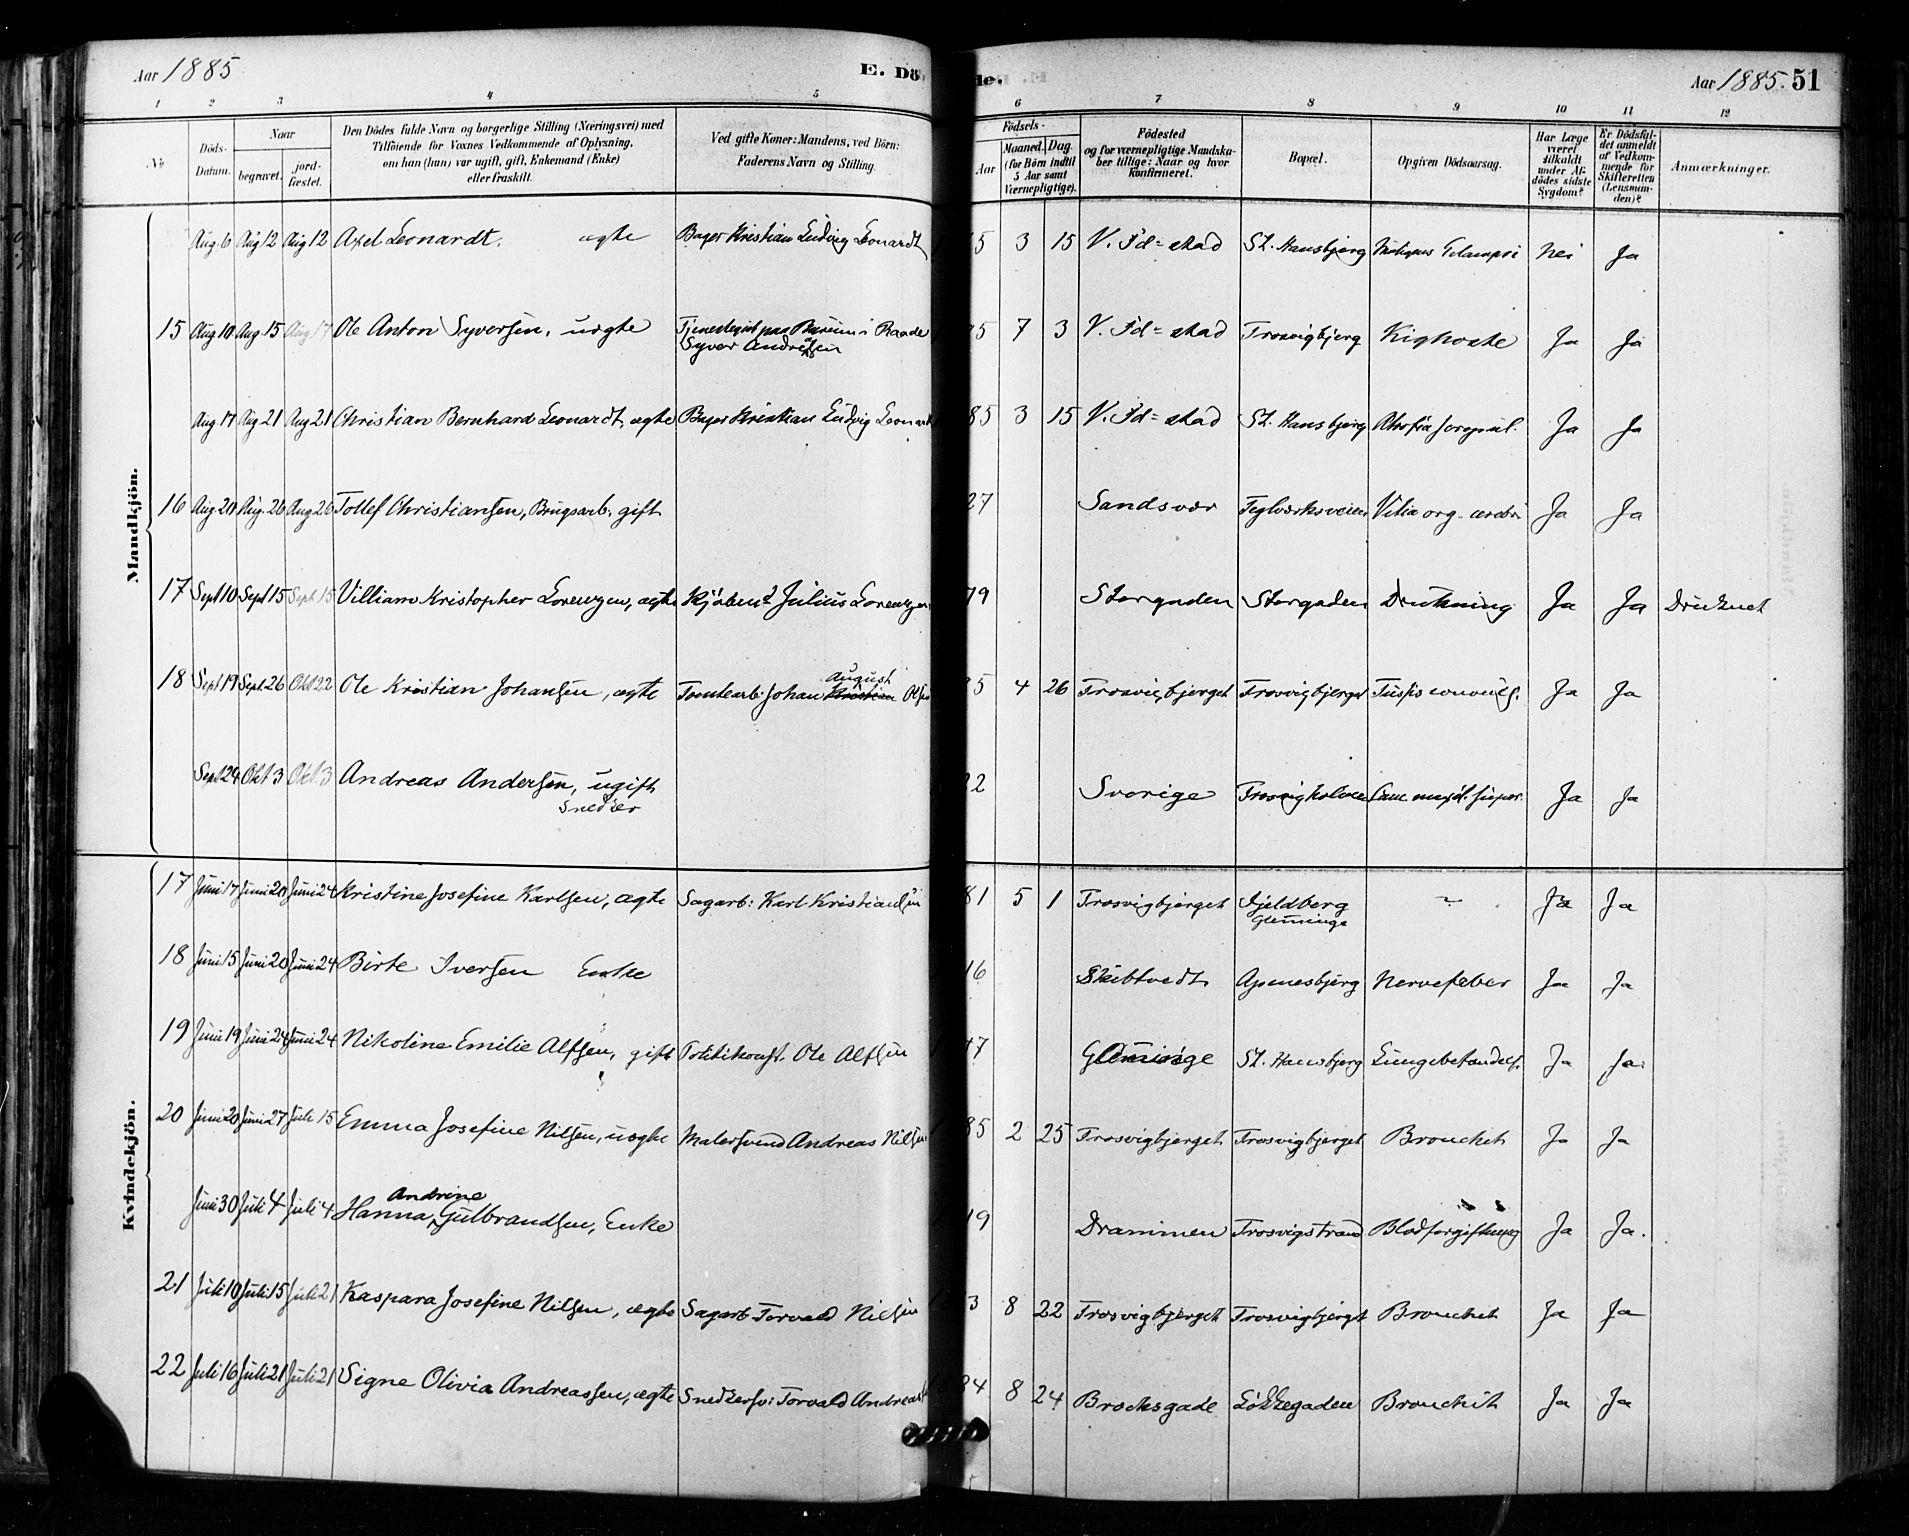 Aar 1885
E. Dö
de.
Aar 1885. 51
1 2 3 4 5 6 7 8 9 10 11 12
No
Döds-Datum.
Naar
begravet.
jord-fæstet.
Den Dödes fulde Navn og borgerlige Stilling (Næringsvei) med
Tilföiende for Voxnes Vedkommende af Oplysning,
om han (hun) var ugift, gift, Enkemand (Enke)
eller fraskilt.
Ved gifte Koner: Mandens, ved Börn:
Faderens Navn og Stilling.
Födsels-
Aar
Maaned. Dag
(for Börn indtil
5 Aar samt
Værnepligtige).
Födested
og for værnepligtige Mandska-
ber tillige: Naar og hvor
konfirmeret.
Bopæl.
Opgiven Dödsaarsag.
Har Læge
været
tilkaldt
under Af-
dödes sidste
Sygdom?
Er Dödsfal-
det anmeldt
af Vedkom-
mende for
Skifteretten
(Lensman-
den)?
Anmærkninger.
Mandkjön.
Aug. 6 Aug 12 Aug 12 Axel Leonardt, ægte Bager Kristian Ludvig Leonardt 5 3 15 V. Fd=stad St. Hansbjerg Nei Ja
15 Aug 10 Aug. 15 Aug 17 Ole Anton Syversen, uægte Tjenestegut paa i Raade 5 7 3 V. Fd=stad Trosvigbjerg Kighoste Ja Ja
Syver Andresen
Aug. 17 Aug 21 Aug 21 Christian Bernhard Leonardt, ægte Bager Kristian Ludvig Leonardt 85 3 15 V. Fd=stad St. Hansbjerg Ja Ja
16 Aug 20 Aug. 26 Aug 26 Tollef Christiansen, Brugsarb. gift 27 Sandsvær Teglværksveien Vitia org. cerebri Ja Ja
17 Sept 10 Sept 15 Sept 15 Villiam Kristopher Lorenzen, ægte Kjøbmd Julius Lorenzen 79 Storgaden Storgaden Drukning Ja Ja Druknet
August
18 Sept 19 Sept. 26 Okt 22 Ole Kristian Johansen, ægte Tomtearb. Johan Kristian Olsen 5 4 26 Trosvigbjerget Trosvigbjerget Tussis convuls. Ja Ja
Sept 29 Okt 3 Okt 3 Andreas Andersen, ugift 2 Sverige Ja Ja
Snedker
Kvindekjön.
17 Juni 17 Juni 20 Juni 24 Kristine Josefine Karlsen, ægte Sagarb: Karl Kristiansen 81 5 1 Trosvigbjerget Fjeldberg ~ Ja Ja
Glemminge
18 Juni 15 Juni 20 Juni 24 Birte Iversen Enke 16 Skibtvedt Apenesbjerg Nervefeber Ja Ja
19 Juni 19 Juni 24 Juni 24 Nikoline Emilie Alfsen, gift Politikonst. Ole Alfsen 47 Glemminge St. Hansbjerg Lungebetændels. Ja Ja.
20 Juni 20 Juni 27 Juli 15 Emma Josefine Nilsen, uægte Malersvend Andreas Nilsen 85 2 25 Trosvigbjerget Trosvigbjerget Bronchit Ja Ja
Andrine
Juni 30 Juli 4 Juli 4 Hanna Gulbrandsen, Enke 19 Drammen Trosvigstrand Blodforgiftning Ja Ja.
21 Juli 10 Juli 15 Juli 21 Kaspara Josefine Nilsen, ægte Sagarb Torvald Nilsen 3 8 22 Trosvigbjerget Trosvigbjerget Bronchit Ja Ja
22 Juli 16 Juli 21 Juli 21 Signe Olivia Andreassen, ægte Snedkersv: Torvald Andreas 84 8 24 Brochsgade Løkkegaden Bronchit Ja Ja